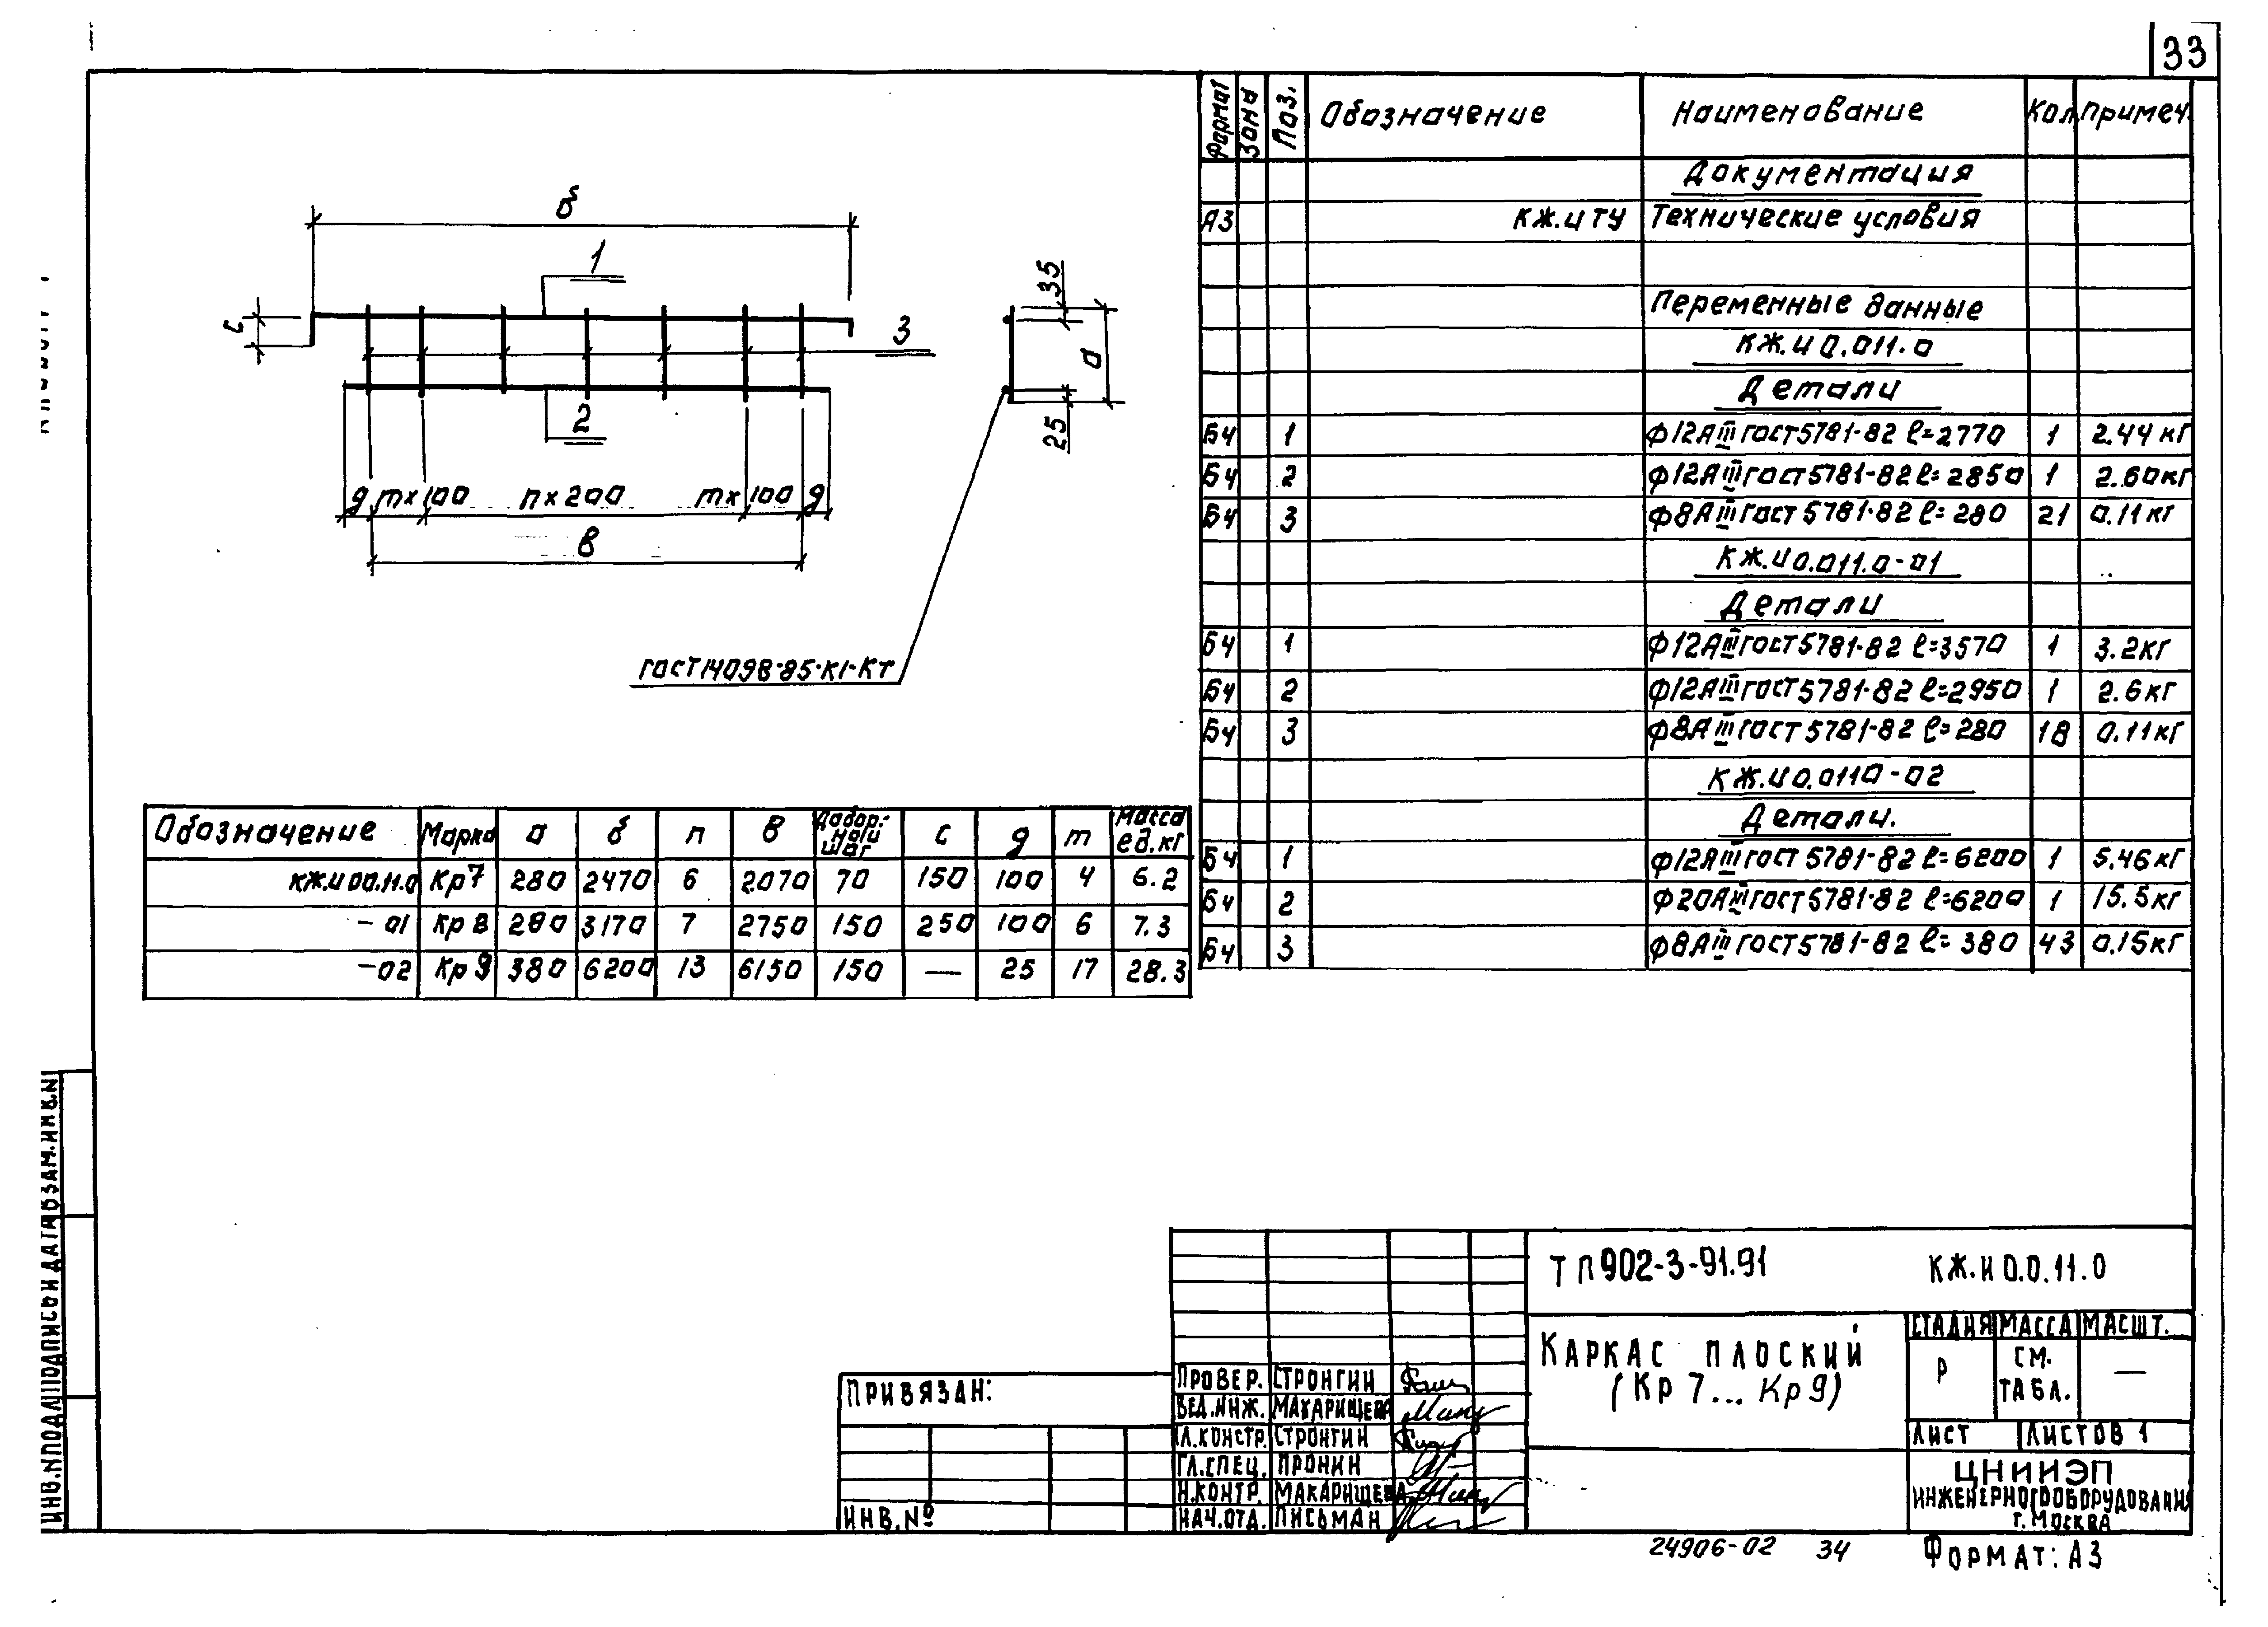 33
Формат Зона Поз. Обозначение Наименование Кол Примеч.
Документация
А3 КЖ.И ТУ Технические условия
Переменные данные
КЖ.И 0.011.0
Детали
БЧ 1 Ф12АIII ГОСТ 5781-82 ℓ=2770 1 2.44 кг
БЧ 2 Ф12АIII ГОСТ 5781-82 ℓ=2850 1 2.60кг
БЧ 3 Ф8АIII ГОСТ 5781-82 ℓ=280 21 0.11 кг
КЖ.И 0.011.0-01
Детали
БЧ 1 Ф12АIII ГОСТ 5781-82 ℓ=3570 1 3.2кг
БЧ 2 Ф12АIII ГОСТ 5781-82 ℓ=2950 1 2.6 кг
БЧ 3 Ф8АIII ГОСТ 5781-82 ℓ=280 18 0.11 кг
КЖ.И 0.0110-02
Детали.
БЧ 1 Ф12АIII ГОСТ 5781-82 ℓ=6200 1 5.46 кг
БЧ 2 Ф20АIII ГОСТ 5781-82 ℓ=6200 1 15.5 кг
БЧ 3 Ф8АIII ГОСТ 5781-82 ℓ=380 43 0.15 кг
б
1
с
3
2
35
а
25
g m×100 n×200 m×100 g
в
ГОСТ 14098-85-К1-Кт
Обозначение Марка а б п в Добор-ной шаг с g m Масса ед.кг
КЖ.И 00.11.0 Кр7 280 2470 6 2070 70 150 100 4 6.2
-01 Кр 8 280 3170 7 2750 150 250 100 6 7.3
-02 Кр 9 380 6200 13 6150 150 — 25 17 28.3
ИНВ.N ПОДЛ ПОДПИСЬ И ДАТА ВЗАМ.ИНВ.N
ПРИВЯЗАН:
ИНВ.№
ПРОВЕР. СТРОНГИН
ВЕД.ИНЖ. МАКАРИЩЕВА
ГЛ.КОНСТР. СТРОНГИН
ГЛ.СПЕЦ. ПРОНИН
Н.КОНТР. МАКАРИЩЕВА
НАЧ.ОТД. ПИСЬМАН
ТП 902-3-91.91 КЖ.И 0.0.11.0
КАРКАС ПЛОСКИЙ
(Кр 7... Кр 9)
СТАДИЯ МАССА МАСШТ.
Р СМ. ТАБЛ. —
ЛИСТ ЛИСТОВ 1
ЦНИИЭП
ИНЖЕНЕРНОГО ОБОРУДОВАНИЯ
г. МОСКВА
24906-02 34
ФОРМАТ: А3